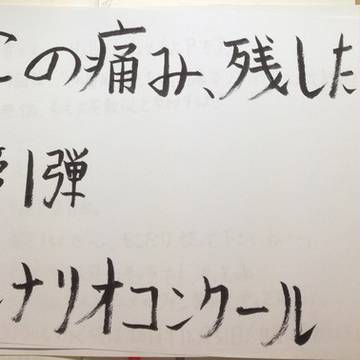 この痛み、残した
第1弾
シナリオコンクール